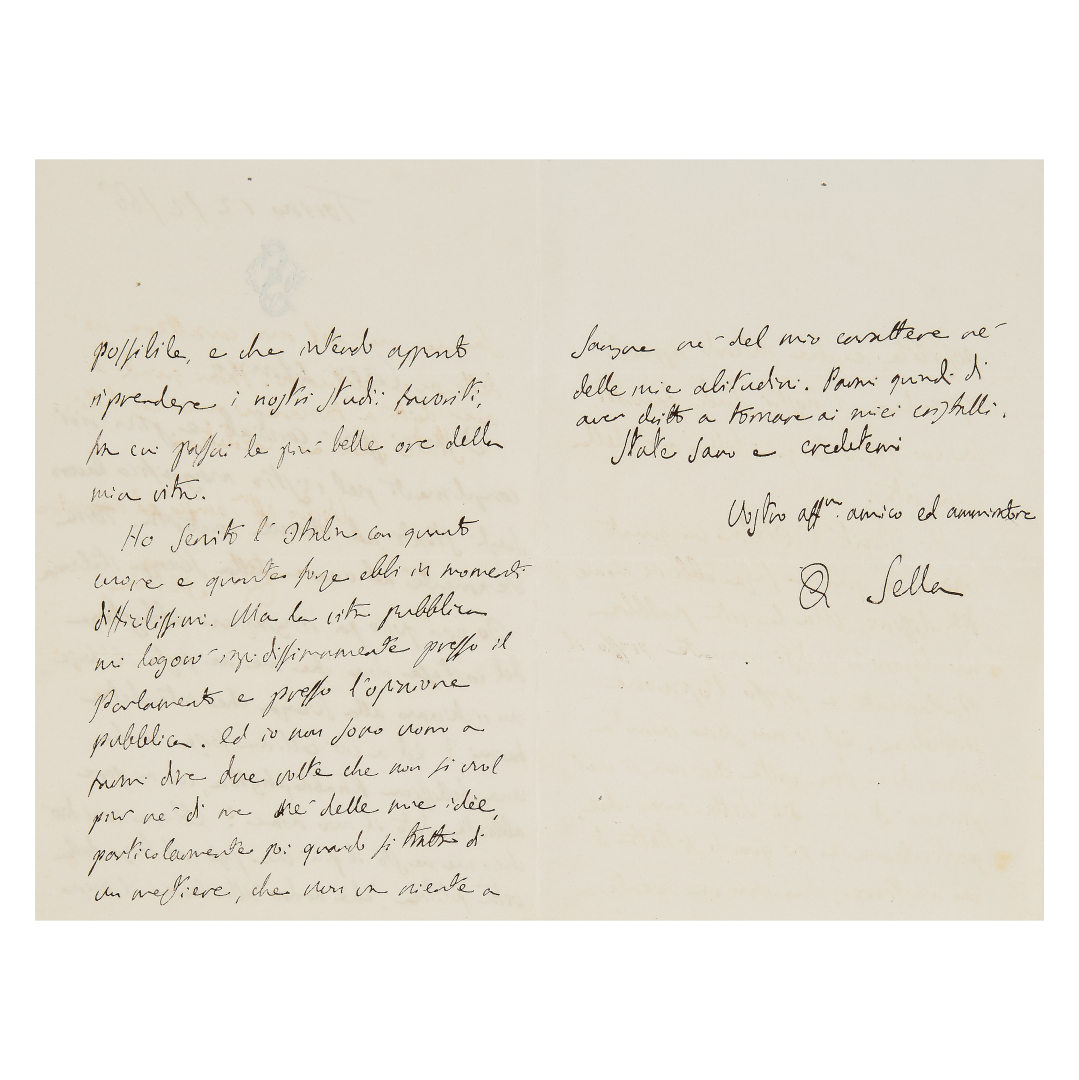 possibile, e che intendo appunto
riprendere i nostri studii favoriti,
fra cui passai le più belle ore della
mia vita.
Ho servito l'Italia con quanto
cuore e quante forze ebbi in momenti
difficilissimi. Ma la vita pubblica
mi logorò rapidissimamente presso il
Parlamento e presso l'opinione
pubblica. Ed io non sono uomo a
farmi dire due volte che non si vuol
più nè di me nè delle mie idee,
particolarmente poi quando si tratta di
un mestiere, che non va niente a
sangue nè del mio carattere nè
delle mie abitudini. Parmi quindi di
aver diritto a tornare ai miei cristalli.
State sano e credetemi
Vostro affmo. amico ed ammiratore
Q Sella